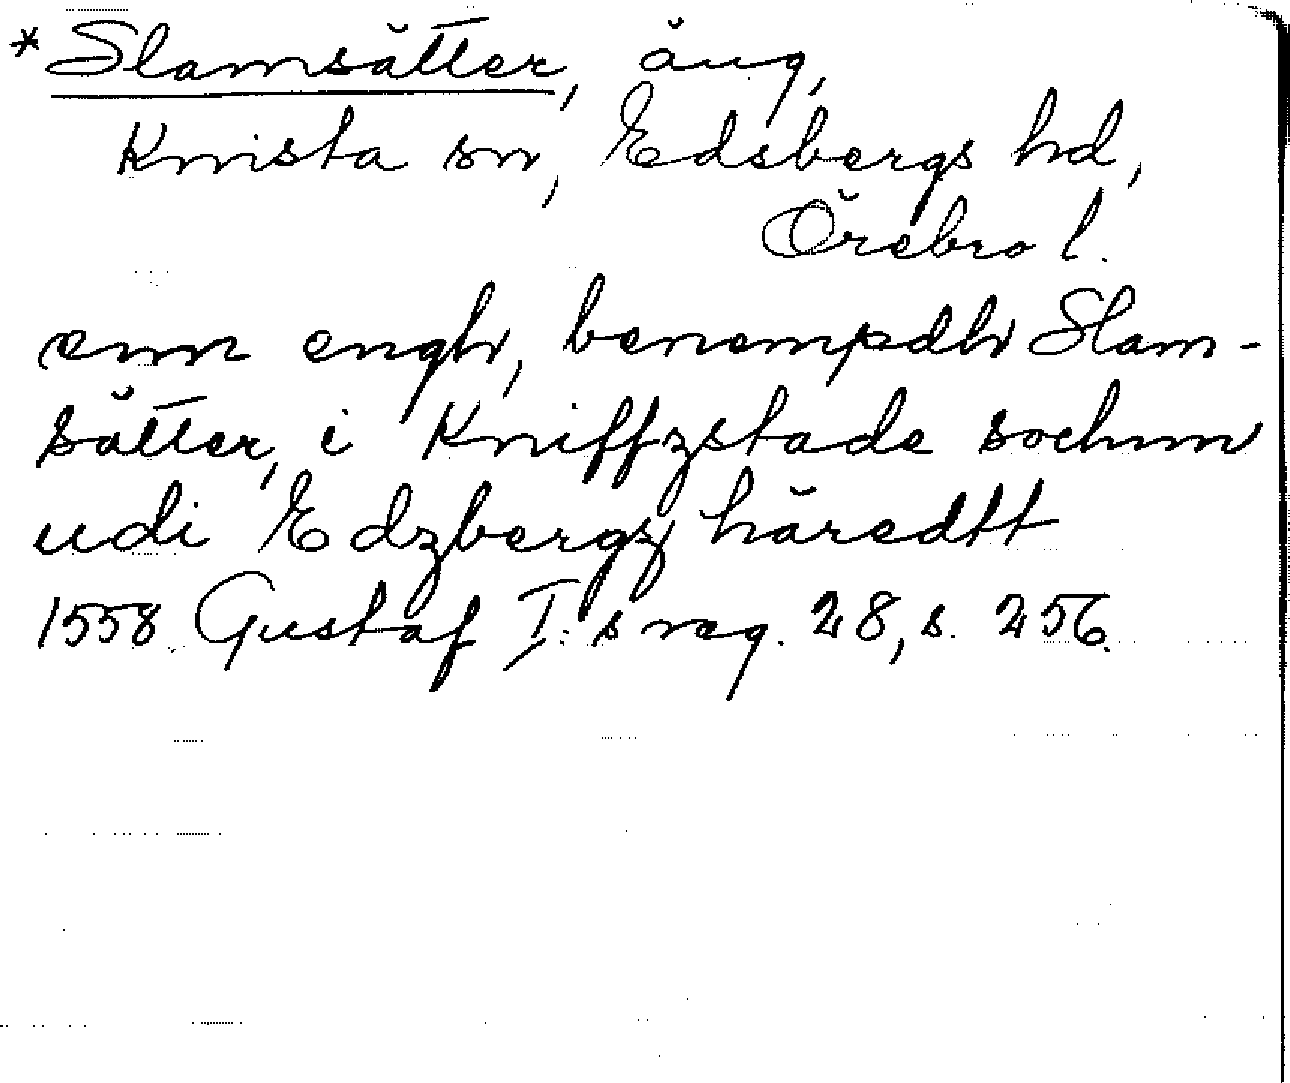 *Slamsätter, äng,
Knista sn, Edsbergs hd,
Örebro l.
enn engh, benempdh Slam-
sätter, i Kniffzstade sochnn
udi Edzbergz häredtt
1558 Gustaf I:s reg. 28, s. 256.